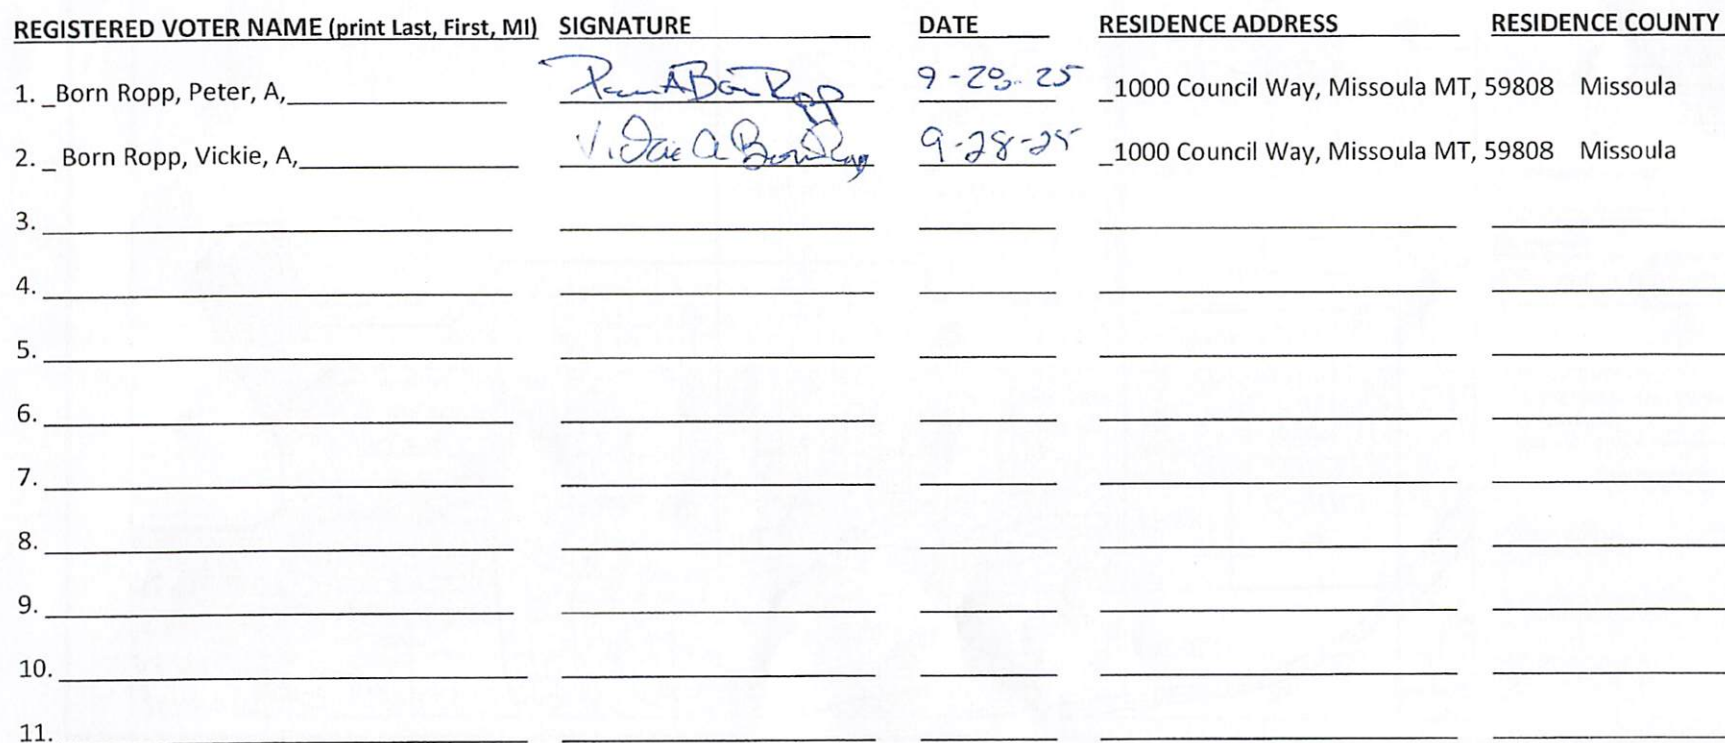 REGISTERED VOTER NAME (print Last, First, MI) SIGNATURE DATE RESIDENCE ADDRESS RESIDENCE COUNTY
1. _Born Ropp, Peter, A, Born Ropp 9-28-25 _1000 Council Way, Missoula MT, 59808 Missoula
2. _ Born Ropp, Vickie, A, Vickie A Born Ropp 9-28-25 _1000 Council Way, Missoula MT, 59808 Missoula
3.
4.
5.
6.
7.
8.
9.
10.
11.